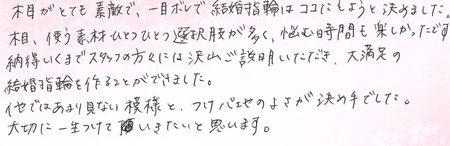 木目がとても素敵で、一目ボレで結婚指輪はココにしようと決めました。
木目、使う素材ひとつひとつ選択肢が多く、悩む時間も楽しかったです
納得いくまでスタッフの方々には沢山ご説明いただき、大満足の
結婚指輪を作ることができました。
他ではあまり見ない模様と、つけバエのよさが決め手でした。
大切に一生つけていきたいと思います。